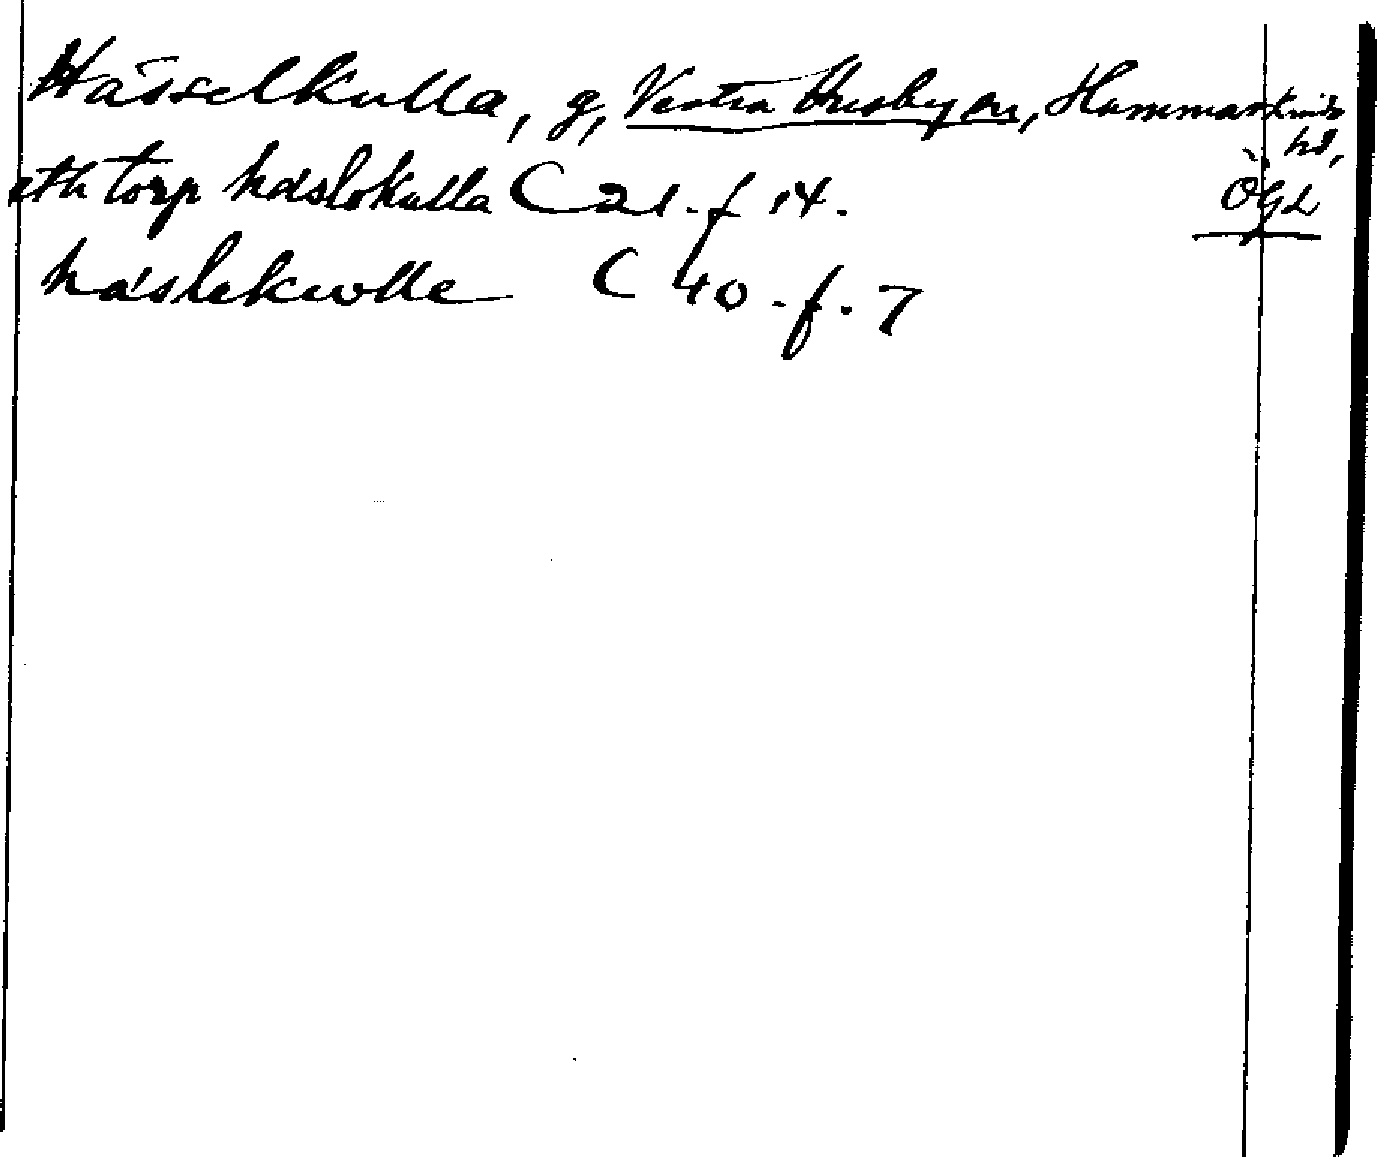 Hässelkulla, g, Vestra Husby sn, Hammarkinds
hd,
ÖGL
eth torp häslokulla C 21. f 14.
häslekwlle C 40. f. 7